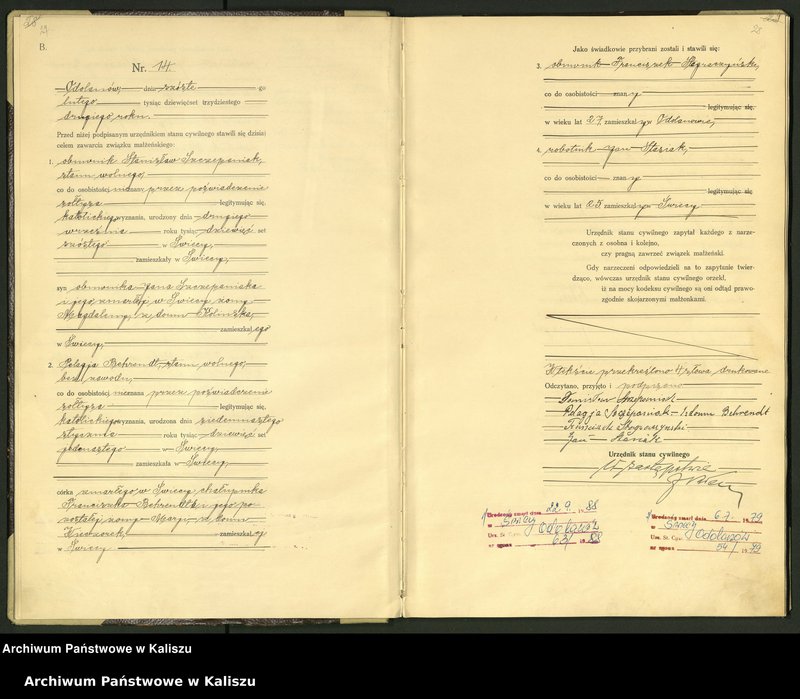 B.
Nr. 14.
Odolanów, dnia szóstego
lutego tysiąc dziewięćset trzydziestego
drugiego roku.
Przed niżej podpisanym urzędnikiem stanu cywilnego stawili się dzisiaj
celem zawarcia związku małżeńskiego:
1. obmownik Stanisław Szczepaniak,
stanu wolnego,
co do osobistości nieznany przez poświadczenie
sołtysa legitymując się,
katolickiego wyznania, urodzony dnia drugiego
września roku tysiąc dziewięć set
szóstego w Świecy,
zamieszkały w Świecy,
syn obmownika Jana Szczepaniaka
i jego zmarłej w Świecy żony
Magdaleny, z domu
zamieszkałego
w Świecy,
2. Pelagja Behrendt, stanu wolnego,
bez zawodu,
co do osobistości nieznana przez poświadczenie
sołtysa legitymując się,
katolickiego wyznania, urodzona dnia siedemnastego
stycznia roku tysiąc dziewięć set
jedenastego w Świecy,
zamieszkała w Świecy,
córka zmarłego w Świecy chałupnika
Franciszka Behrendta i jego po-
zostałej żony Marji, z domu
zamieszkałej
w Świecy
28
Jako świadkowie przybrani zostali i stawili się:
3. obmownik Franciszek
co do osobistości znany
legitymując się,
w wieku lat 27, zamieszkały w Odolanowie,
4. robotnik Jan Stasiak,
co do osobistości znany
legitymując się
w wieku lat 25, zamieszkały w Świecy
Urzędnik stanu cywilnego zapytał każdego z narze-
czonych z osobna i kolejno,
czy pragną zawrzeć związek małżeński.
Gdy narzeczeni odpowiedzieli na to zapytanie twier-
dząco, wówczas urzędnik stanu cywilnego orzekł,
iż na mocy kodeksu cywilnego są oni odtąd prawo-
zgodnie skojarzonymi małżonkami.
W tekście przekreślono 4 słowa drukowane
Odczytano, przyjęto i podpisano
Stanisław Szczepaniak
Pelagja Szczepaniak z domu Behrendt
Franciszek
Jan Stasiak
Urzędnik stanu cywilnego
W zastępstwie
Urodzony zmarł dnia 22.9. 1988
w Świecy
Urz. St. Cyw. Odolanów
nr zgonu 63/ 1988
Urodzony zmarł dnia 6.7. 1979
w Świecy
Urz. St. Cyw. Odolanów
nr zgonu 54/ 1979
Archiwum Państwowe w Kaliszu
Archiwum Państwowe w Kaliszu